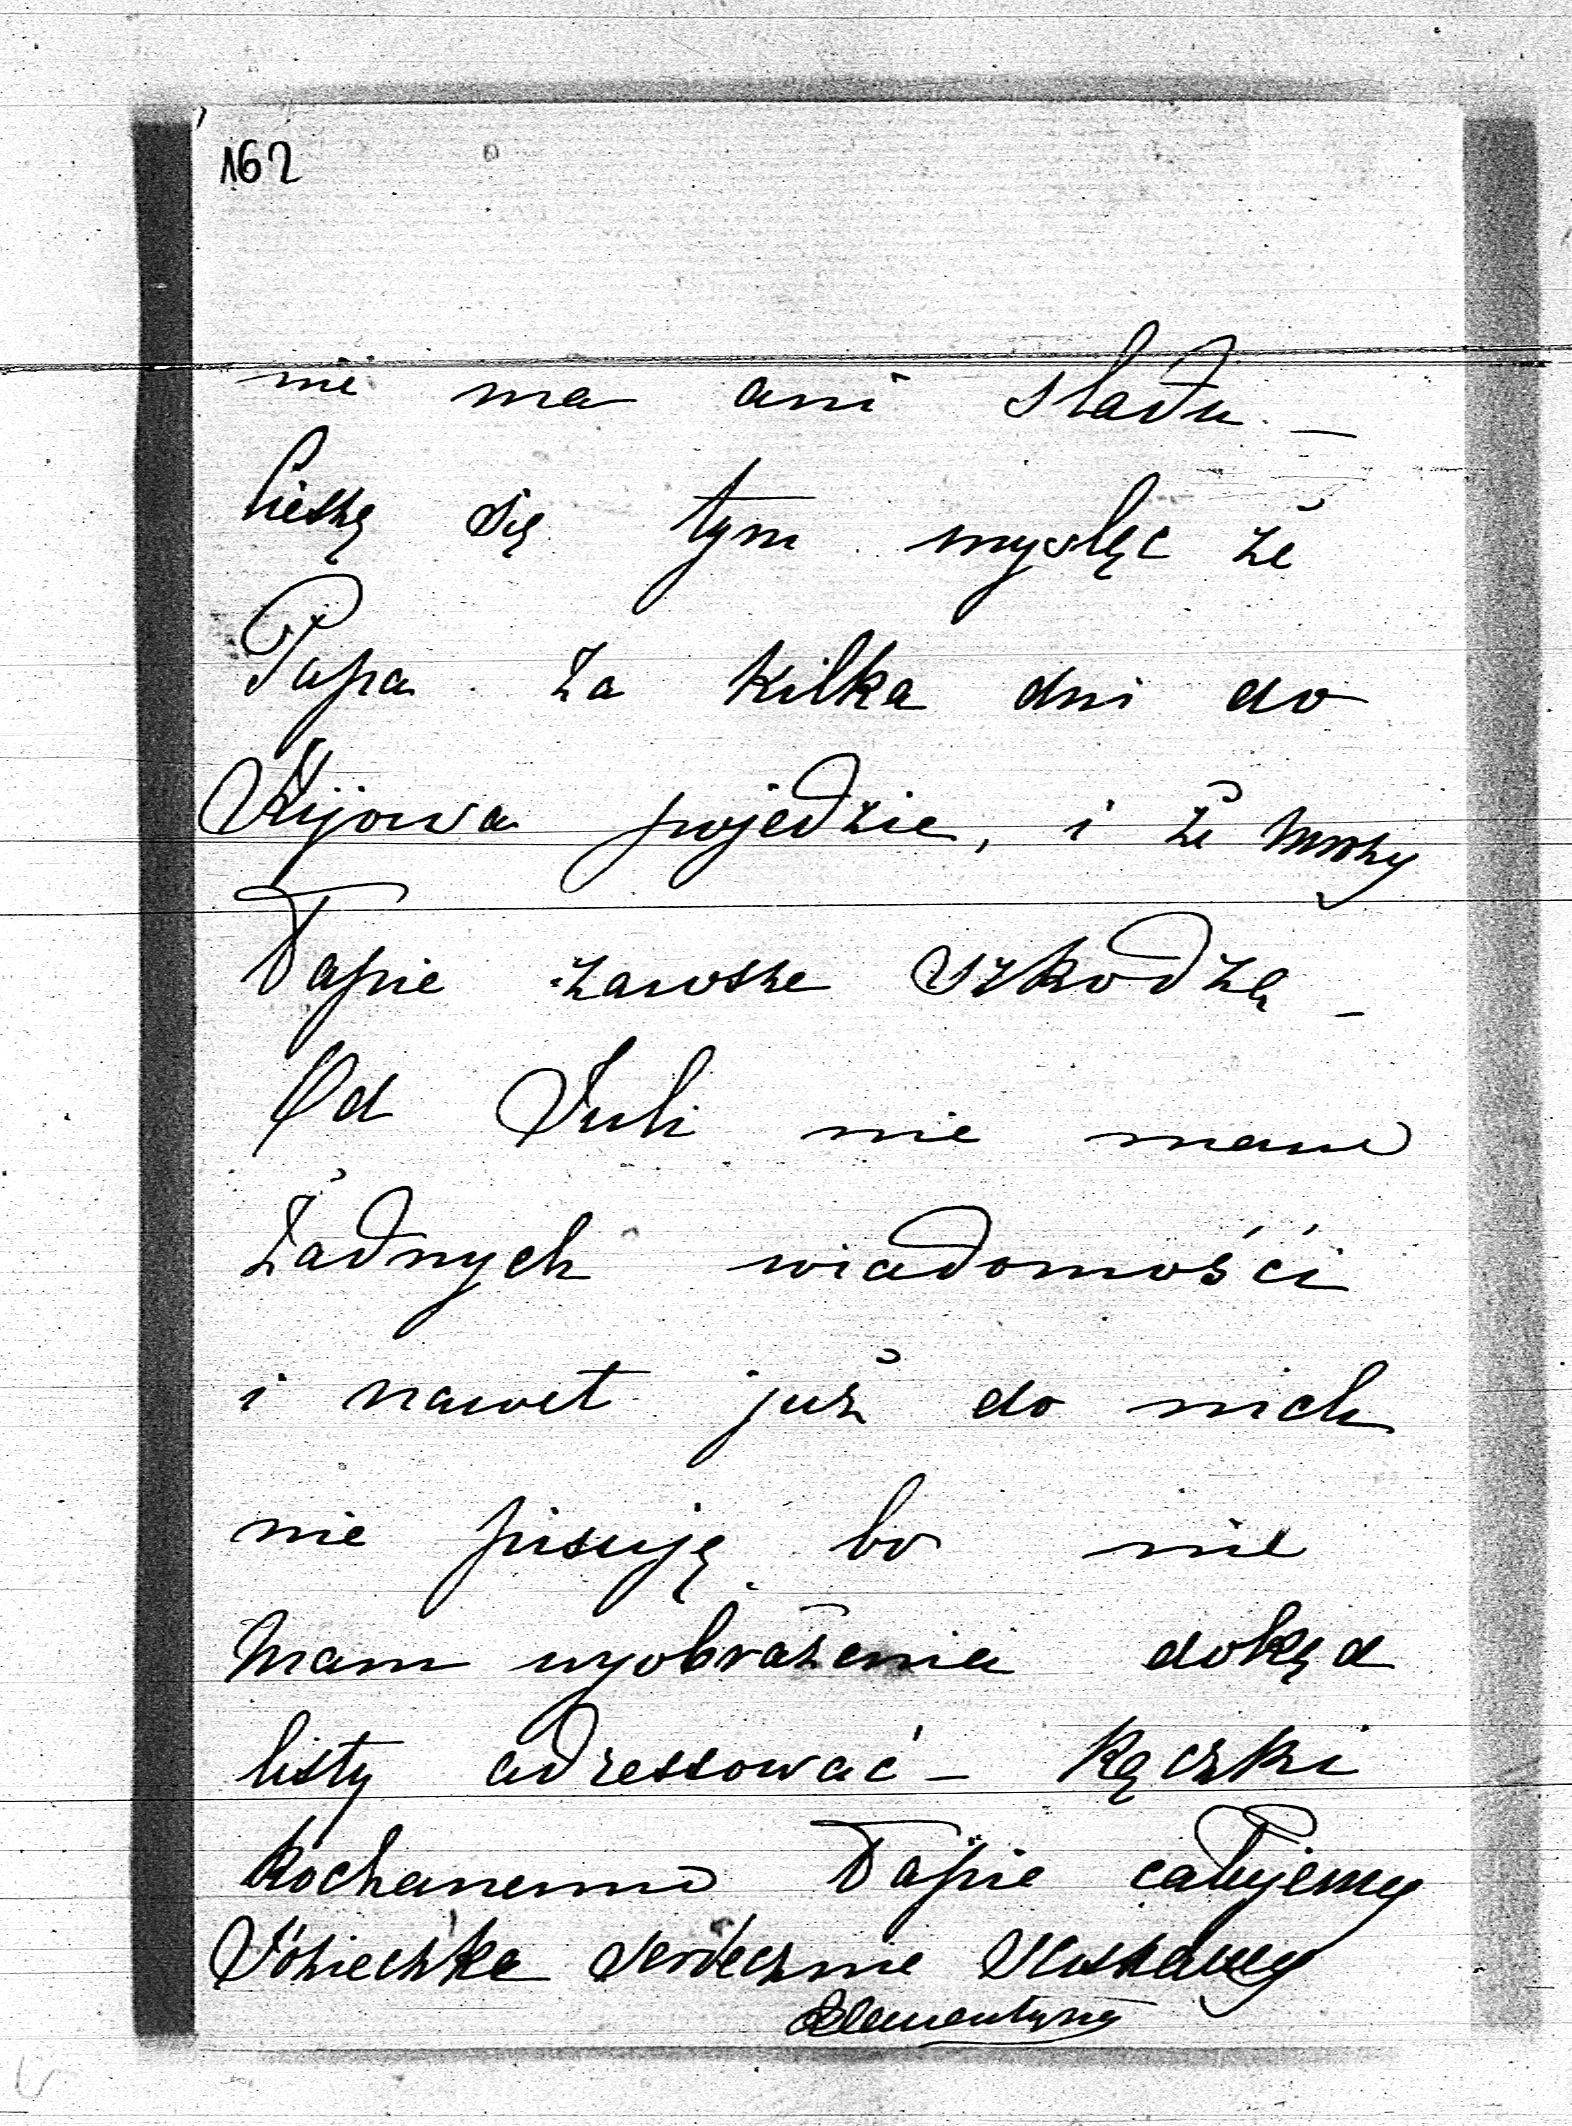 162
nie ma ani sladu _
Cieszę się tym myslęc że
Papa za kilka dni do
Kijowa pojedzie, i że mrozy
Papie zawsze szkodzą _
Od Juli nie mam
Żadnych wiadomości
i nawet już do nich
nie pisuję bo nie
mam wyobrażenia dokąd
listy adressować _ Rączki
kochanemu Papie całujemy
Józieczka serdecznie sciskamy
Klementyna